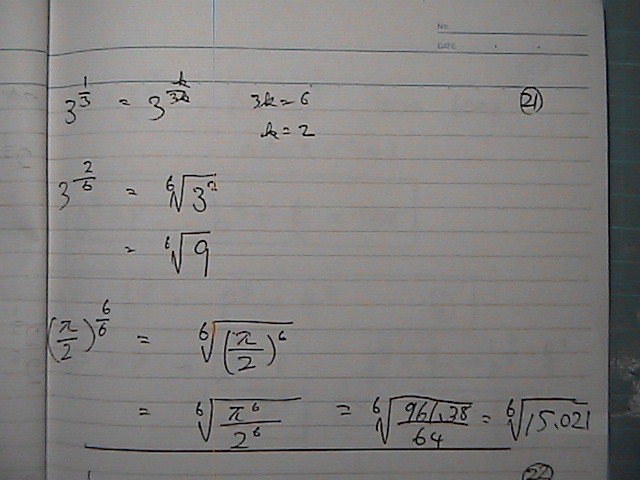 No.
DATE . .
3^{1/3} = 3^{k/3k} 3k = 6 ㉑
k = 2
3^{2/6} = ⁶√3²
= ⁶√9
(π/2)^{6/6} = ⁶√(π/2)⁶
= ⁶√(π⁶/2⁶) = ⁶√(961.38/64) = ⁶√15.021
㉒